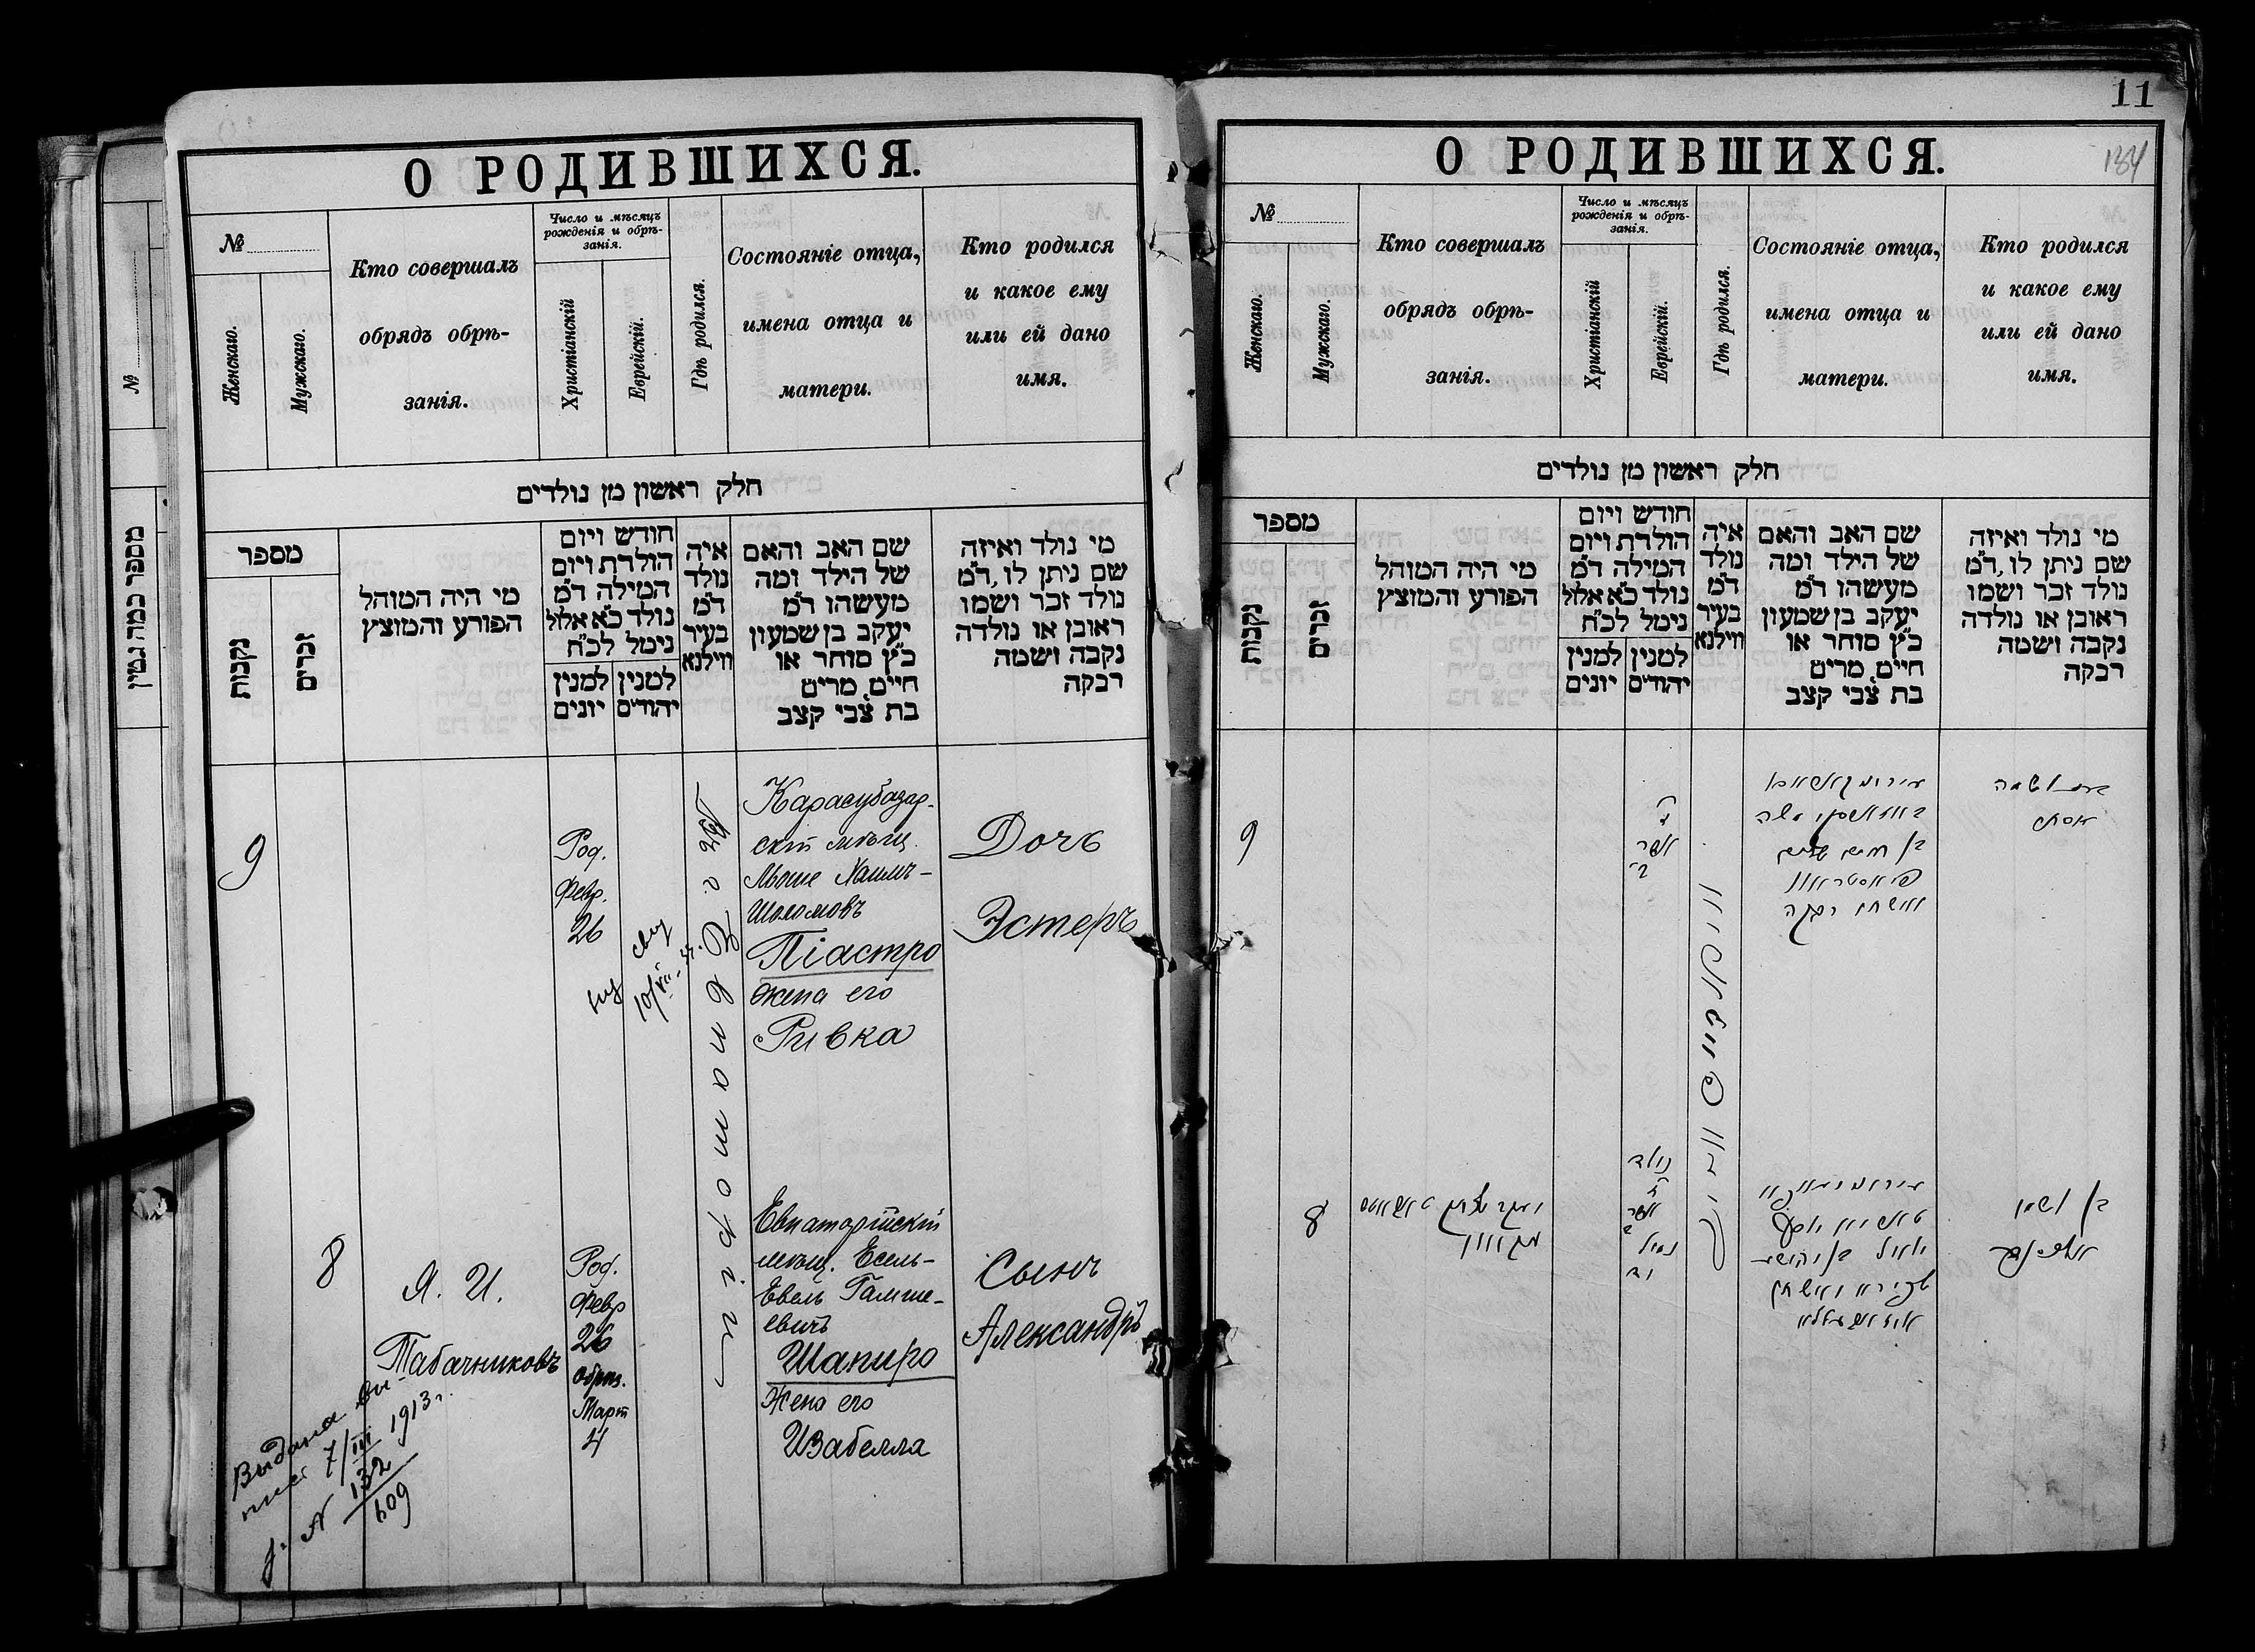 О РОДИВШИХСЯ.
№
Женскаго.
Мужскаго.
Кто совершалъ
обрядъ обрѣ-
занія.
Число и мѣсяцъ
рожденія и обрѣ-
занія.
Христіанскій
Еврейскій.
Гдѣ родился.
Состояніе отца,
имена отца и
матери.
Кто родился
и какое ему
или ей дано
имя.
חלק ראשון מן נולדים
מספר
נקבות
זכרים
מי היה המוהל
הפורע והמוצץ
חודש ויום
הולדת ויום
המילה ד״מ
נולד כ״א אלול
נימל לכ״ח
למנין
יונים
למנין
יהודים
איה
נולד
ד״מ
בעיר
ווילנא
שם האב והאם
של הילד ומה
מעשהו ד״מ
יעקב בן שמעון
כ״ץ סוחר או
חייט, מרים
בת צבי קצב
מי נולד ואיזה
שם ניתן לו, ד״מ
נולד זכר ושמו
ראובן או נולדה
נקבה ושמה
רבקה
9
Род.
Февр.
26
Въ г. Евпаторіи
Карасубазар-
скій мѣщ.
Мойше Хаимъ-
Шоломовъ
Піастро
жена его
Ривка
Дочь
Эстеръ
8
Я. И.
Табачниковъ
Род.
Февр
26
Обрѣз.
Март
4
Евпаторійскій
мѣщ. Есель-
Евель Гамше-
евичъ
Шапиро
Жена его
Изабелла
Сынъ
Александръ
Выдана вы-
пис 7/III 1913 г.
№ 132
609
11
184
О РОДИВШИХСЯ.
№
Женскаго.
Мужскаго.
Кто совершалъ
обрядъ обрѣ-
занія.
Число и мѣсяцъ
рожденія и обрѣ-
занія.
Христіанскій
Еврейскій.
Гдѣ родился.
Состояніе отца,
имена отца и
матери.
Кто родился
и какое ему
или ей дано
имя.
חלק ראשון מן נולדים
מספר
נקבות
זכרים
מי היה המוהל
הפורע והמוצץ
חודש ויום
הולדת ויום
המילה ד״מ
נולד כ״א אלול
נימל לכ״ח
למנין
יונים
למנין
יהודים
איה
נולד
ד״מ
בעיר
ווילנא
שם האב והאם
של הילד ומה
מעשהו ד״מ
יעקב בן שמעון
כ״ץ סוחר או
חייט, מרים
בת צבי קצב
מי נולד ואיזה
שם ניתן לו, ד״מ
נולד זכר ושמו
ראובן או נולדה
נקבה ושמה
רבקה
9
אדר
משה
בן חיים שלום
פיאסטרא
ואשתו רבקה
בת ושמה
אסתר
8
נולד
אדר
נימול
שפירא ואשתו
בן ושמו
אלכסנדר